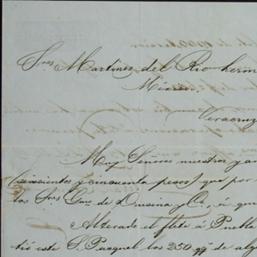 Sres Martinez del Rio herm
Mexico
Veracruz
Muy Señores nuestros y am
(seiscientos y cincuenta pesos) que por
los Sres
de
y Ca. á qu
Alterado el flete á Puebla
tió este S. Pasquel los 250 qq de alg